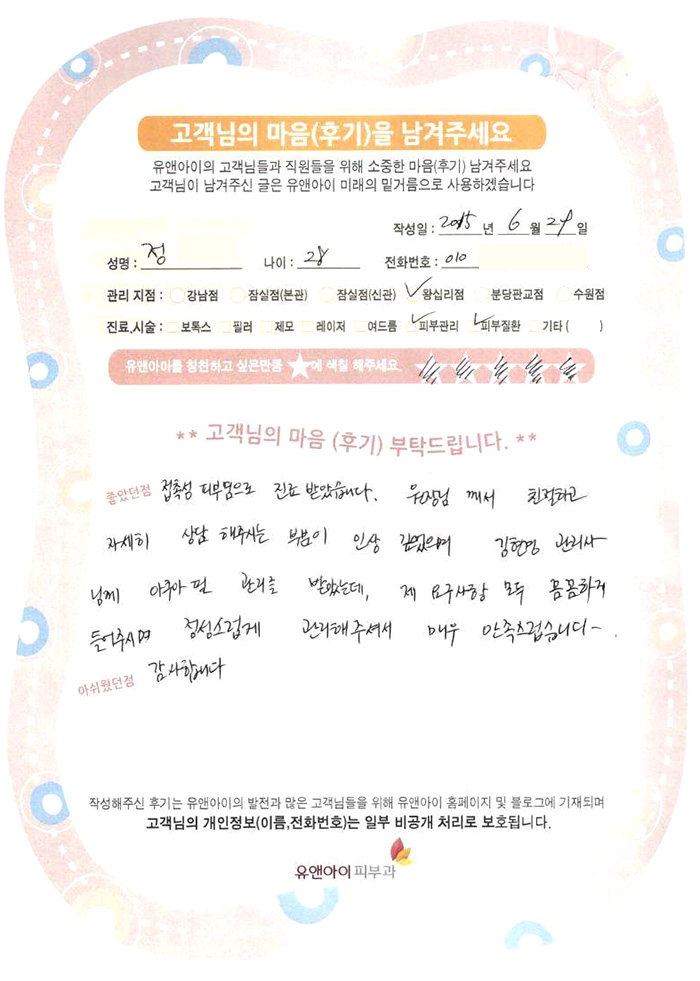 고객님의 마음(후기)을 남겨주세요
유앤아이의 고객님들과 직원들을 위해 소중한 마음(후기) 남겨주세요
고객님이 남겨주신 글은 유앤아이 미래의 밑거름으로 사용하겠습니다
작성일 : 2015 년 6 월 29 일
성명 : 정 나이 : 28 전화번호 : 010
관리 지점 : 강남점 잠실점(본관) 잠실점(신관) 왕십리점 분당판교점 수원점
진료,시술 : 보톡스 필러 제모 레이저 여드름 피부관리 피부질환 기타 ( )
유앤아이를 칭찬하고 싶은만큼 ★에 색칠 해주세요.
** 고객님의 마음 (후기) 부탁드립니다. **
좋았던점 접촉성 피부염으로 진료 받았습니다. 원장님 께서 친절하고
자세히 상담 해주시는 부분이 인상 깊었으며 김현영 관리사
님께 아쿠아 필 관리를 받았는데, 제 요구사항 모두 꼼꼼하게
들어주시며 정성스럽게 관리해주셔서 매우 만족스럽습니다~.
감사합니다
아쉬웠던점
작성해주신 후기는 유앤아이의 발전과 많은 고객님들을 위해 유앤아이 홈페이지 및 블로그에 기재되며
고객님의 개인정보(이름,전화번호)는 일부 비공개 처리로 보호됩니다.
유앤아이피부과